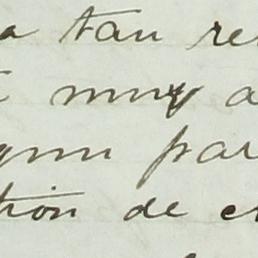 a tan re
muy a
gun par
tion de e